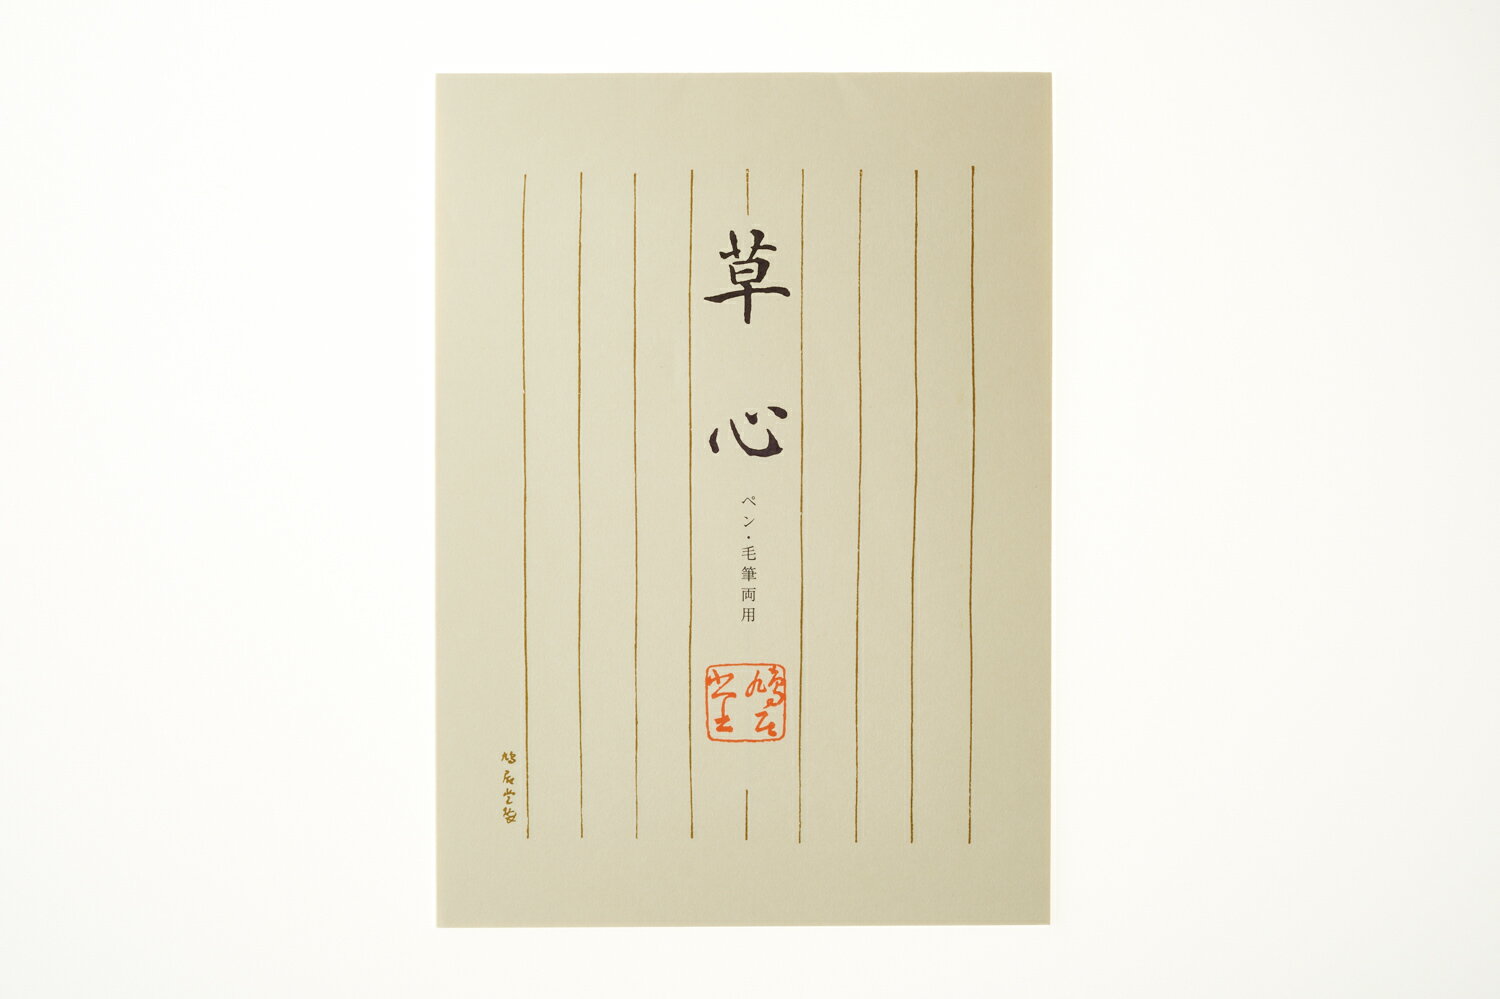 草心
ペン・毛筆両用
鳩居
堂
鳩居堂製